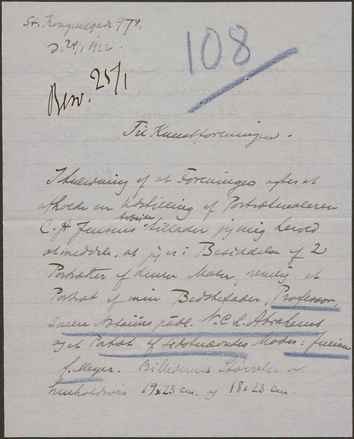 St. Kongensgade 77⁴.
D. 24/1 1922.
108
Besv. 25/1
Til Kunstforeningen.
I Anledning af at Foreningen agter at
afholde en Udstilling af Portrætmaleren
C. A. Jensens Billeder jeg mig herved
at meddele, at jeg er i Besiddelse af 2
Portrætter af denne Maler, nemlig et
Portræt af min Bedstefader, Professor
juris N. C. L. Abrahams
og et Portræt af Moder:
f. Meyer. Billedernes Størrelse er
henholdsvis 19x23 cm. og 18x23 cm.